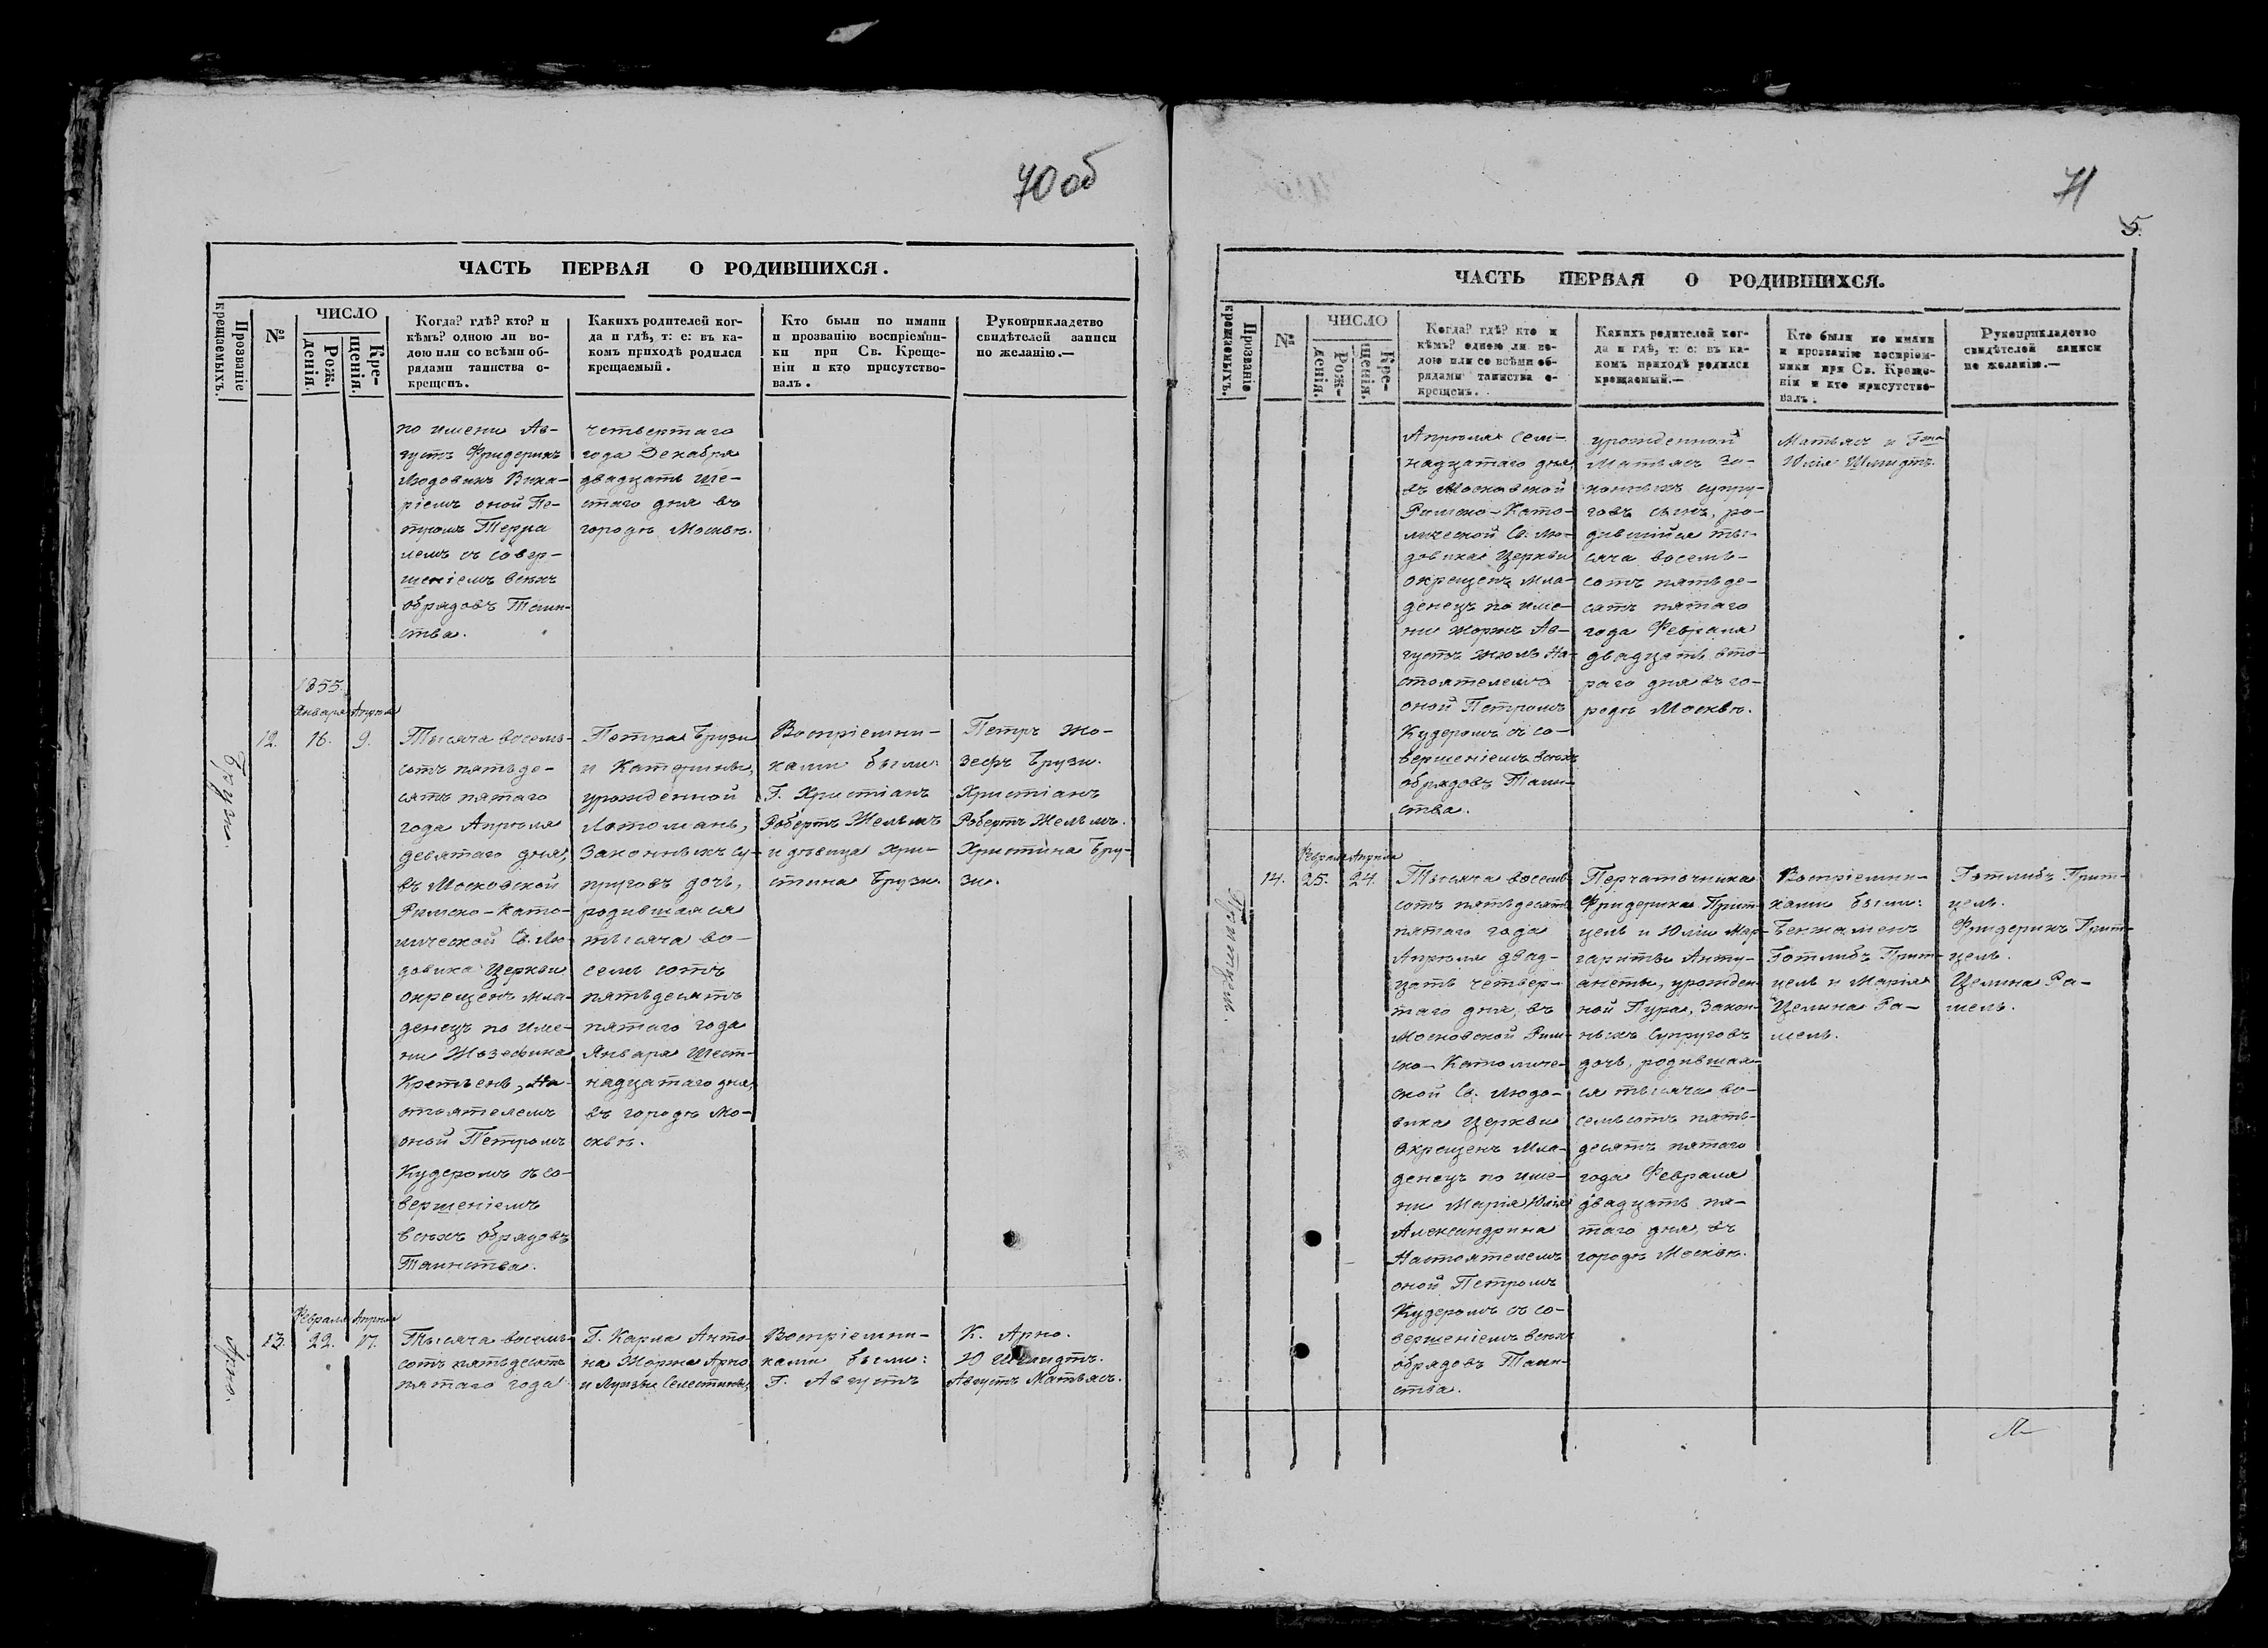 70 об
ЧАСТЬ ПЕРВАЯ О РОДИВШИХСЯ.
Прозваніе крещаемыхъ.
№
ЧИСЛО
Рож.
денія.
Кре-
щенія.
Когда? гдѣ? кто? и
кѣмъ? одною ли во-
дою или со всѣми об-
рядами таинства о-
крещенъ.
Какихъ родителей ког-
да и гдѣ, т: е: въ ка-
комъ приходѣ родился
крещаемый.
Кто были по имяни
и прозванію воспріемни-
ки при Св. Креще-
ніи и кто присутство-
валъ.
Рукоприкладство
свидѣтелей записи
по желанію.—
по имени Ав-
густъ Фридерикъ
Людовикъ Вика-
ріемъ оной Пе-
тромъ
лемъ съ совер-
шеніемъ всѣхъ
обрядовъ Таин-
ства.
четвертаго
года Декабря
двадцать ше-
стаго дня въ
городѣ Москвѣ.
Брузи
12.
1855.
Января
16.
Апрѣля
9.
Тысяча восемь-
сотъ пятьде-
сятъ пятаго
года Апрѣля
девятаго дня,
въ Московской
Римско-Като-
лической Св. Лю-
довика Церкви
окрещенъ мла-
денецъ по име-
ни Жозефина
Кретьень, На-
стоятелемъ
оной Петромъ
Кудеромъ съ со-
вершеніемъ
всѣхъ обрядовъ
Таинства.
Петра Брузи
и Катерины,
урожденной
Лотоманъ,
Законныхъ Су-
пруговъ дочь,
родившаяся
тысяча во-
семь сотъ
пятьдесятъ
пятаго года
Января Шест-
надцатаго дня,
въ городѣ Мо-
сквѣ.
Воспріемни-
ками были:
Г. Христіанъ
Робертъ Жельмъ
и дѣвица Хри-
стина Брузи.
Петръ Жо-
зефъ Брузи.
Христіанъ
Робертъ Жельмъ.
Христина Бру-
зи.
Арно.
13.
Февраля
22.
Апрѣля
17.
Тысяча восемь-
сотъ пятьдесятъ
пятаго года
Г. Карла Анто-
на Жоржа Арно
и Луизы Селестины,
Воспріемни-
ками были:
Г. Августъ
К. Арно.
Ю Шмидтъ.
Августъ Матьясъ.
71
5.
ЧАСТЬ ПЕРВАЯ О РОДИВШИХСЯ.
Прозваніе крещаемыхъ.
№
ЧИСЛО
Рож-
денія.
Кре-
щенія.
Когда? гдѣ? кто и
кѣмъ? одною ли во-
дою или со всѣми об-
рядами таинства о-
крещенъ.
Какихъ родителей ког-
да и гдѣ, т: е: въ ка-
комъ приходѣ родился
крещаемый.—
Кто были по имяни
и прозванію воспріем-
ники при Св. Креще-
ніи и кто присутство-
валъ.
Рукоприкладство
свидѣтелей записи
по желанію.—
Апрѣля Сем-
надцатаго дня,
въ Московской
Римско-Като-
лической Св. Лю-
довика Церкви
окрещенъ мла-
денецъ по име-
ни Жоржъ Ав-
густъ Жюль На-
стоятелемъ
оной Петромъ
Кудеромъ съ со-
вершеніемъ всѣхъ
обрядовъ Таин-
ства.
урожденной
Матьясъ За-
конныхъ супру-
говъ сынъ, ро-
дившійся ты-
сяча восемь-
сотъ пятьде-
сятъ пятаго
года Февраля
двадцать вто-
раго дня въ го-
родѣ Москвѣ.
Матьясъ и Г-жа
Юлія Шмидтъ.
Притцель.
14.
Февраля
25.
Апрѣля
24.
Тысяча восемь-
сотъ пятьдесятъ
пятаго года
Апрѣля двад-
цать четвер-
таго дня, въ
Московской Рим-
ско-Католиче-
ской Св. Людо-
вика Церкви
Окрещенъ Мла-
денецъ по име-
ни Марія Юлія
Александрина
Настоятелемъ
оной Петромъ
Кудеромъ съ со-
вершеніемъ всѣхъ
обрядовъ Таин-
ства.
Перчаточника
Фридерика Прит-
цель и Юліи Мар-
гариты Анту-
анеты, урожден-
ной Пура, Закон-
ныхъ Супруговъ
дочь, родившая-
ся тысяча во-
семьсотъ пять-
десятъ пятаго
года Февраля
двадцать пя-
таго дня, въ
городѣ Москвѣ.
Воспріемни-
ками были:
Бенжаменъ
Готлибъ Прит-
цель и Марія
Целина Ра-
шель.
Готлибъ Прит-
цель.
Фридерикъ Прит-
цель.
Целина Ра-
шель.